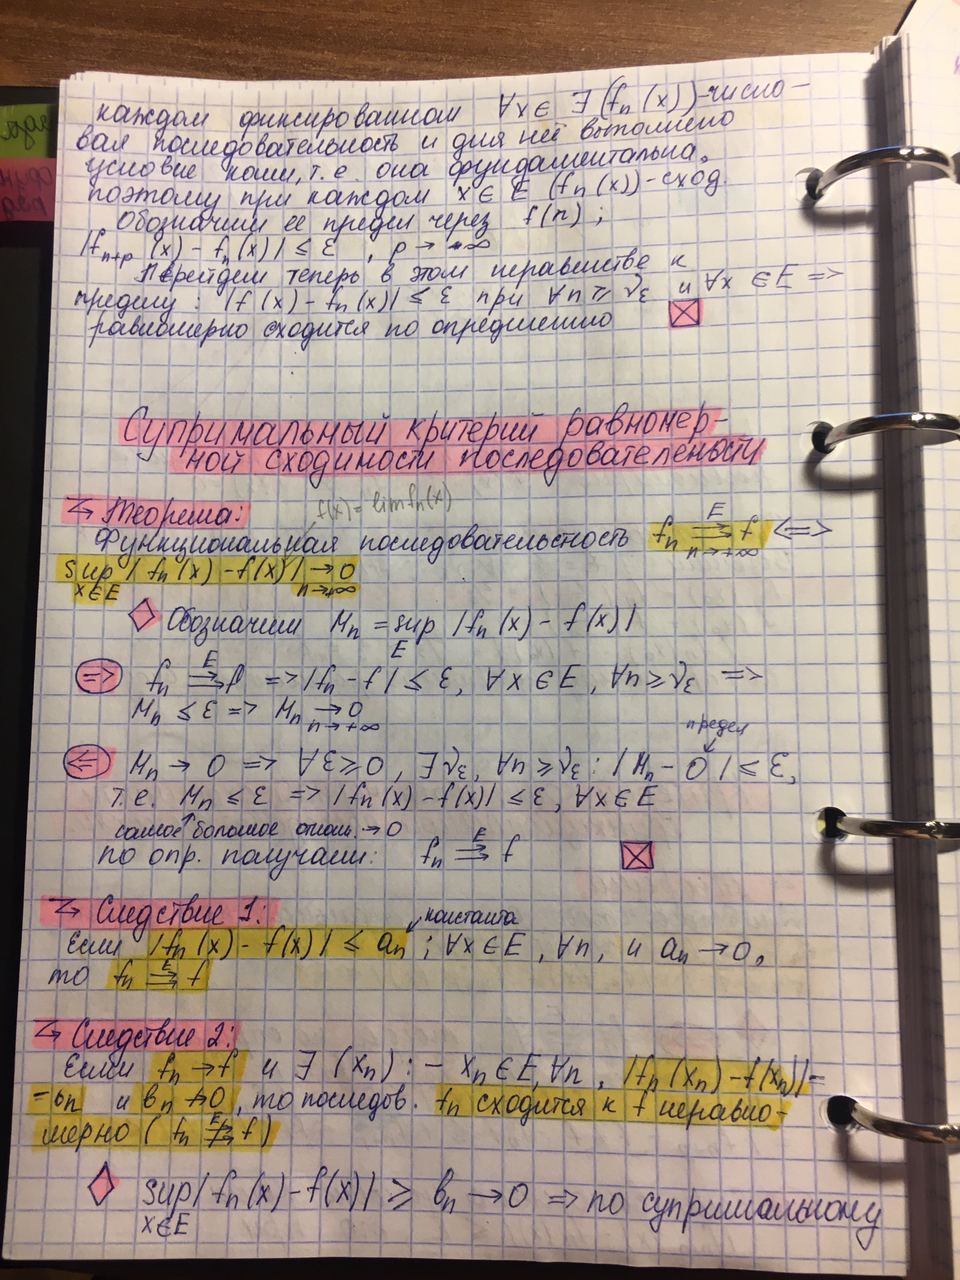 каждом фиксированном ∀x∈E (fₙ(x))-число-
вая последовательность и для неё выполнено
условие Коши, т.е. она фундаментальна,
поэтому при каждом x∈E (fₙ(x))-сход.
Обозначим её предел через f(n);
|fₙ₊ₚ(x) - fₙ(x)| ≤ ε, p → +∞
Перейдем теперь в этом неравенстве к
пределу: |f(x) - fₙ(x)| ≤ ε при ∀n ≥ ν_ε и ∀x∈E =>
равномерно сходится по определению
Супримальный критерий равномер-
ной сходимости последовательности
Теорема:
f(x) = lim fₙ(x)
Функциональная последовательность fₙ ⇉ f (E, n→+∞) <=>
sup |fₙ(x) - f(x)| → 0
x∈E n→+∞
Обозначим Mₙ = sup |fₙ(x) - f(x)|
E
=> fₙ ⇉ f (E) => |fₙ - f| ≤ ε, ∀x∈E, ∀n ≥ ν_ε =>
Mₙ ≤ ε => Mₙ → 0
n→+∞
предел
<= Mₙ → 0 => ∀ε ≥ 0, ∃ν_ε, ∀n ≥ ν_ε: |Mₙ - 0| ≤ ε,
т.е. Mₙ ≤ ε => |fₙ(x) - f(x)| ≤ ε, ∀x∈E
самое большое откл. → 0
по опр. получаем: fₙ ⇉ f (E)
Следствие 1:
константа
Если |fₙ(x) - f(x)| ≤ aₙ; ∀x∈E, ∀n, и aₙ → 0,
то fₙ ⇉ f (E)
Следствие 2:
Если fₙ → f и ∃ (xₙ): - xₙ∈E, ∀n, |fₙ(xₙ) - f(xₙ)| =
= bₙ и bₙ ↛ 0, то последов. fₙ сходится к f неравно-
мерно (fₙ ⇉̸ f (E))
sup |fₙ(x) - f(x)| ≥ bₙ → 0 => по супримальному
x∈E